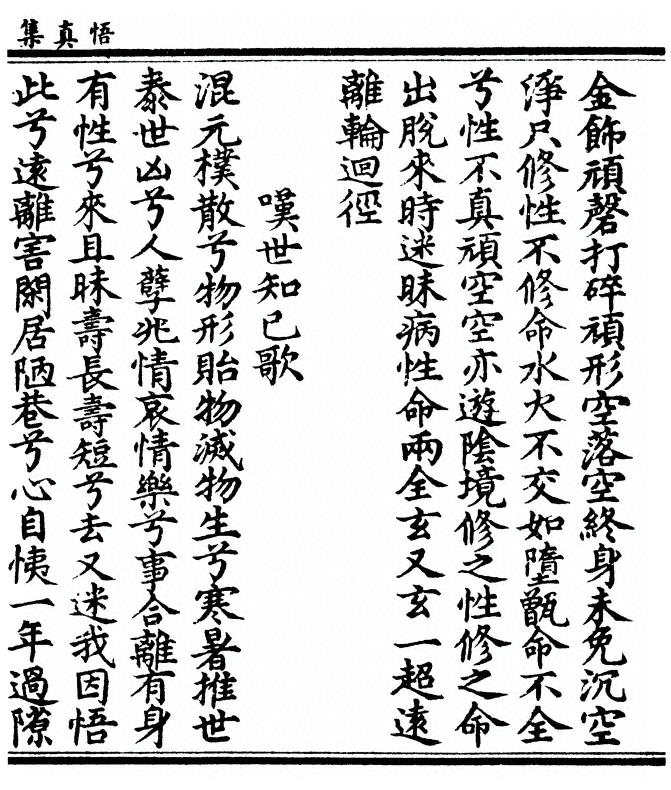 悟真集
金飾頑磬打碎頑形空落空終身未免沉空
淨只修性不修命水火不交如墮甑命不全
兮性不真頑空空亦遊陰境修之性修之命
出脫來時迷昧病性命兩全玄又玄一超遠
離輪迴徑
嘆世知已歌
混元樸散兮物形貽物滅物生兮寒暑推世
泰世凶兮人孽兆情哀情樂兮事合離有身
有性兮來且昧壽長壽短兮去又迷我因悟
此兮遠離害閑居陋巷兮心自怡一年過隙